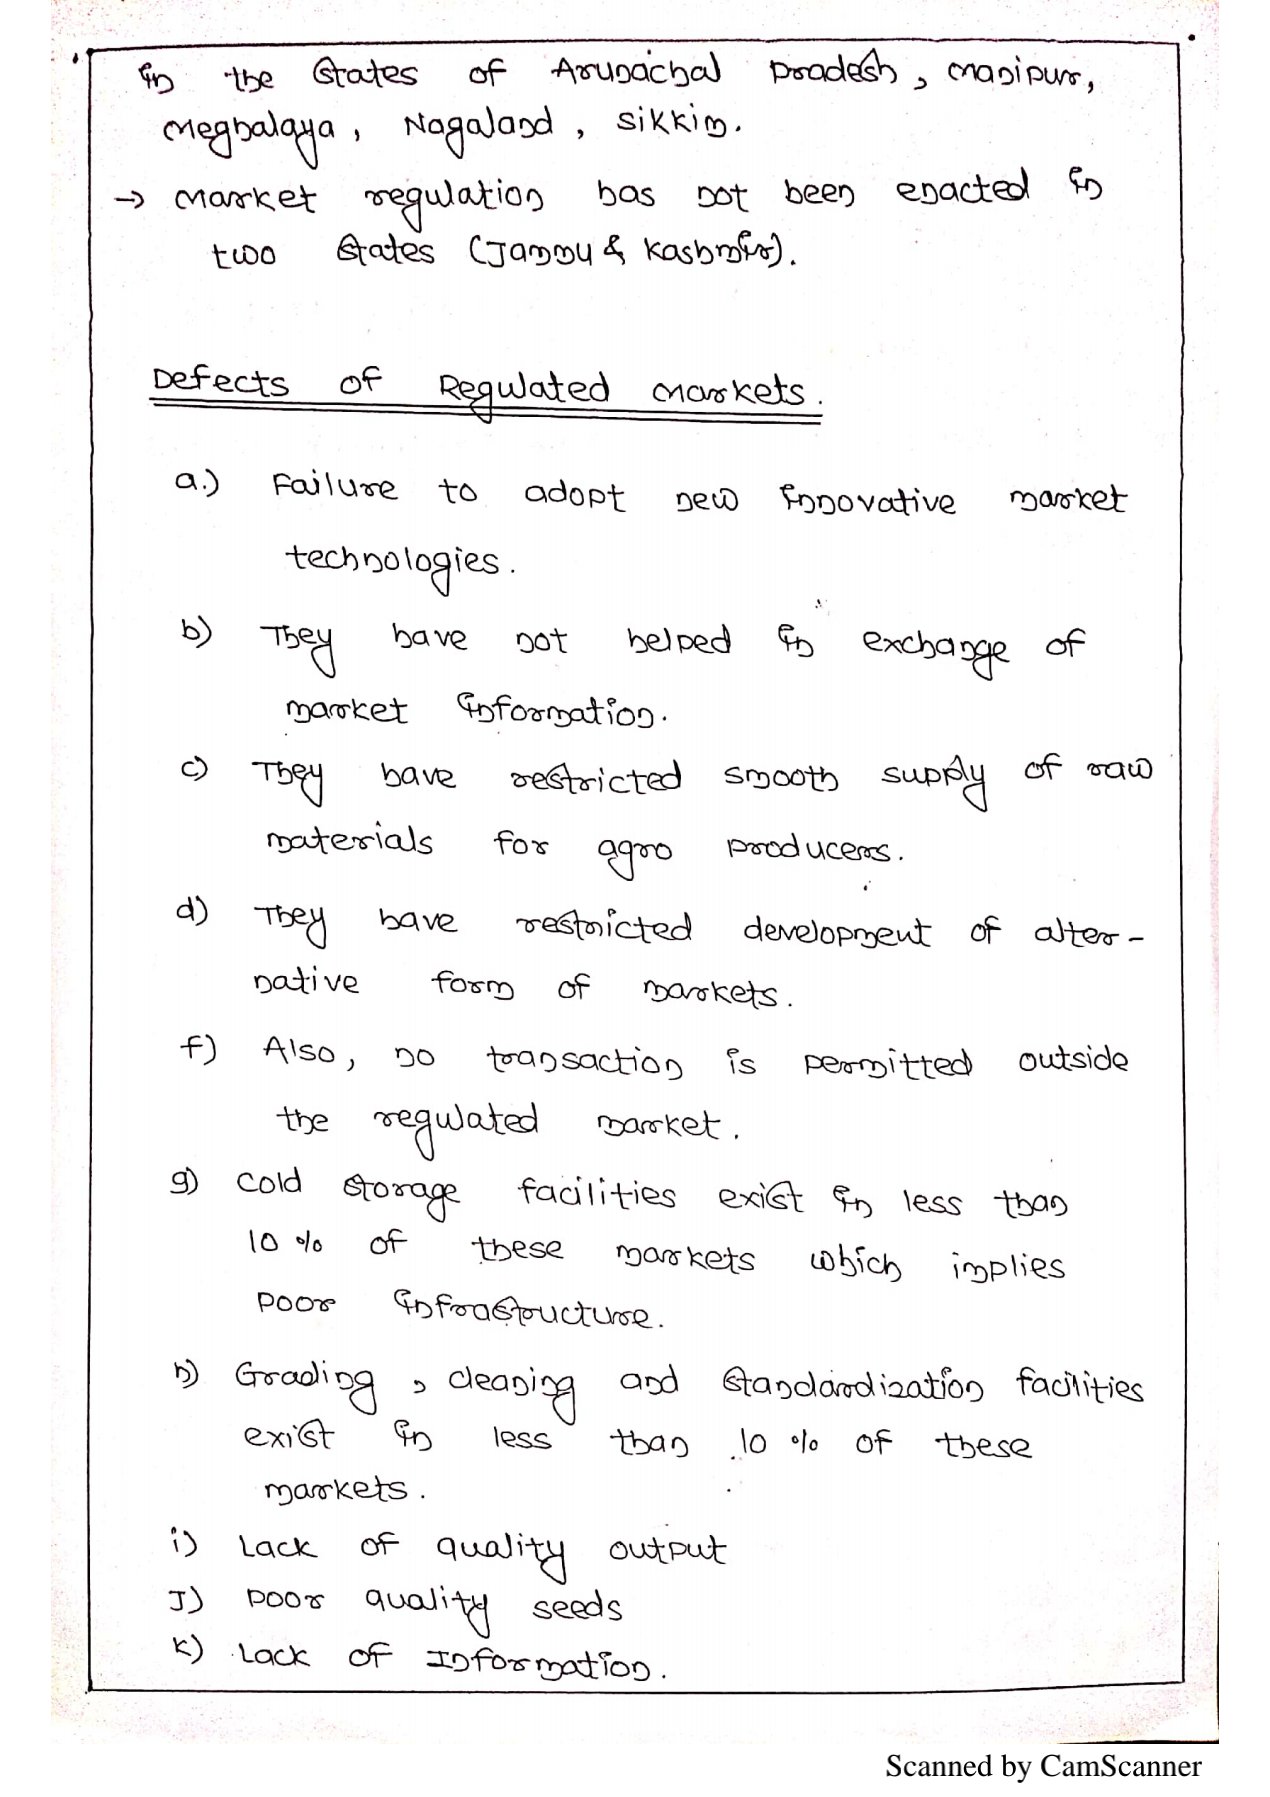 in the States of Arunachal Pradesh, Manipur,
Meghalaya, Nagaland, Sikkim.
→ Market regulation has not been enacted in
two States (Jammu & Kashmir).
Defects of Regulated Markets.
a.) Failure to adopt new innovative market
technologies.
b) They have not helped in exchange of
market information.
c) They have restricted smooth supply of raw
materials for agro producers.
d) They have restricted development of alter-
native form of markets.
f) Also, no transaction is permitted outside
the regulated market.
g) Cold storage facilities exist in less than
10 % of these markets which implies
poor infrastructure.
h) Grading, cleaning and standardization facilities
exist in less than 10 % of these
markets.
i) Lack of quality output
J) Poor quality seeds
K) Lack of Information.
Scanned by CamScanner